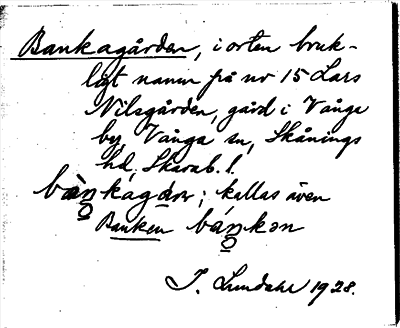 Bankagården, i orten bruk-
ligt namn på nr 15 Lars
Nilsgården, gård i Vånga
by, Vånga sn, Skånings
hd, Skarab. l.
bàŋkagán; kallas även
Banken báŋkən
I. Lundahl 1928.